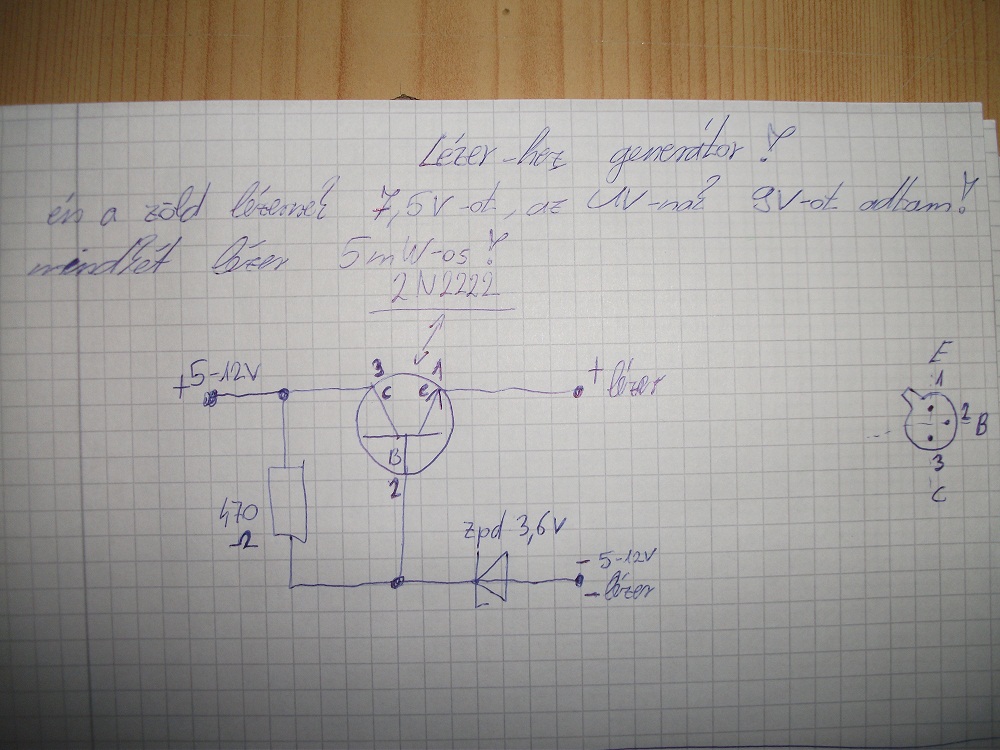 Lézer-hez generátor!
én a zöld lézernek 7,5V-ot, az UV-nak 9V-ot adtam!
mindkét lézer 5mW-os!
2N2222
+5-12V
3
1
C
e
+ lézer
B
2
470
Ω
zpd 3,6V
- 5-12V
- lézer
E
1
2 B
3
C